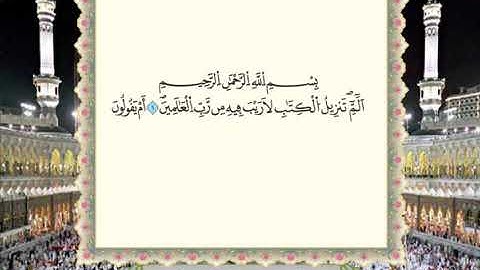 بِسْمِ اللَّهِ الرَّحْمَٰنِ الرَّحِيمِ
الٓمٓ تَنزِيلُ الْكِتَٰبِ لَا رَيْبَ فِيهِ مِن رَّبِّ الْعَٰلَمِينَ ۝١ أَمْ يَقُولُونَ